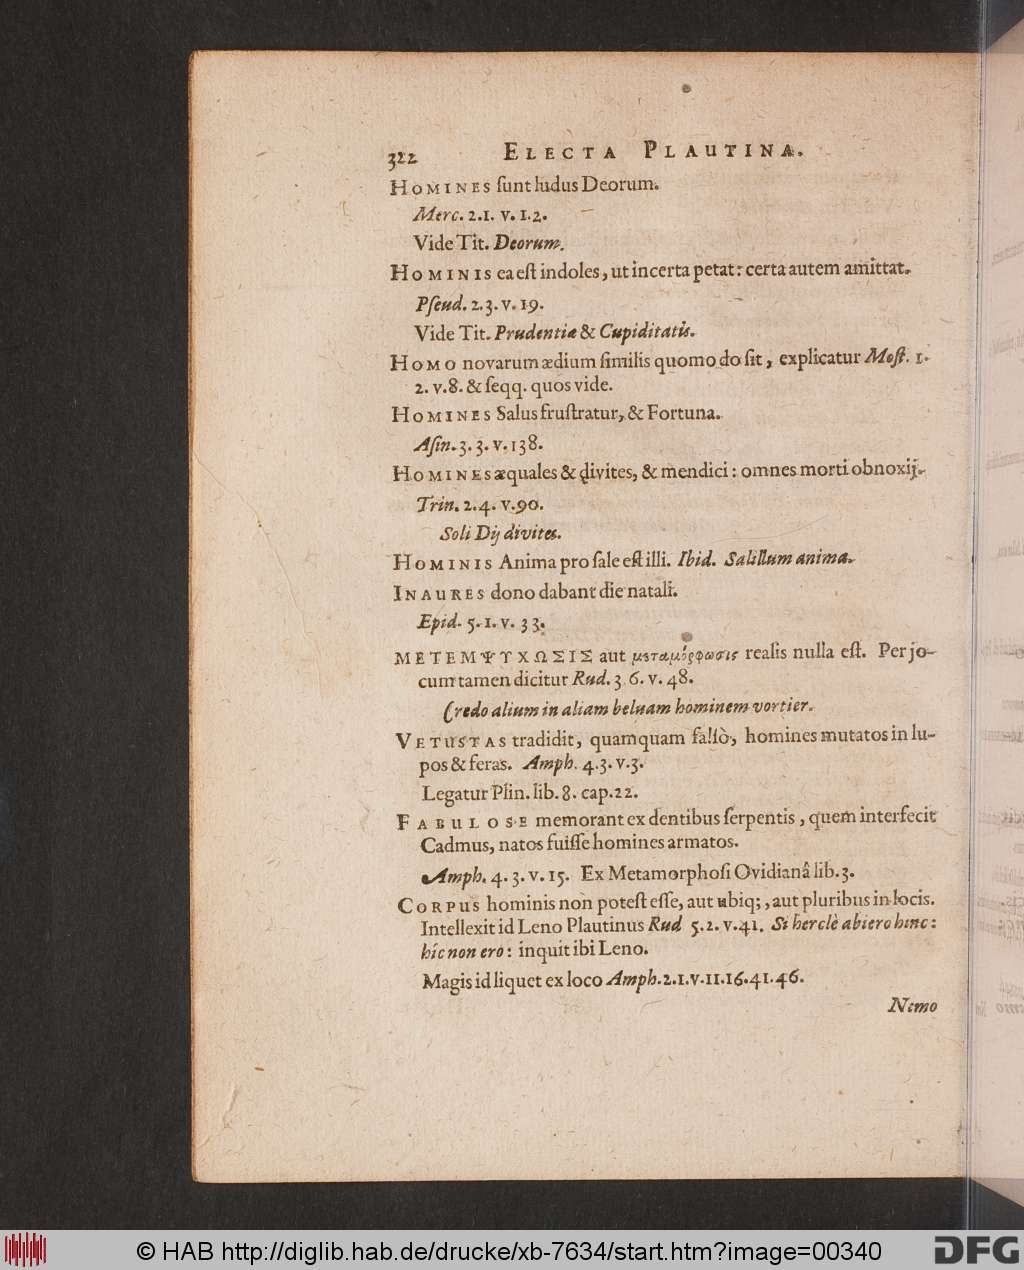 322 ELECTA PLAUTINA.
HOMINES ſunt ludus Deorum.
Merc. 2.1. v. 1.2.
Vide Tit. Deorum.
HOMINIS ea eſt indoles, ut incerta petat: certa autem amittat.
Pſeud. 2.3. v. 19.
Vide Tit. Prudentiæ & Cupiditatis.
HOMO novarum ædium ſimilis quomodo ſit, explicatur Moſt. 1.
2. v.8. & ſeqq. quos vide.
HOMINES Salus fruſtratur, & Fortuna.
Aſin. 3. 3. v. 138.
HOMINES æquales & divites, & mendici: omnes morti obnoxij.
Trin. 2.4. v.90.
Soli Dij divites.
HOMINIS Anima pro ſale eſt illi. Ibid. Salillum animæ.
INAURES dono dabant die natali.
Epid. 5.1. v. 33.
ΜΕΤΕΜΨΥΧΩΣΙΣ aut μεταμόρφωσις realis nulla eſt. Per jo-
cum tamen dicitur Rud. 3 6. v. 48.
Credo alium in aliam beluam hominem vortier.
VETUSTAS tradidit, quamquam falſò, homines mutatos in lu-
pos & feras. Amph. 4.3. v.3.
Legatur Plin. lib. 8. cap. 22.
FABULOSE memorant ex dentibus ſerpentis, quem interfecit
Cadmus, natos fuiſſe homines armatos.
Amph. 4. 3. v. 15. Ex Metamorphoſi Ovidianâ lib. 3.
CORPUS hominis non poteſt eſſe, aut ubiq;, aut pluribus in locis.
Intellexit id Leno Plautinus Rud 5.2. v.41. Si herclè abiero hinc:
híc non ero: inquit ibi Leno.
Magis id liquet ex loco Amph. 2.1.v.11.16.41.46.
Nemo
© HAB http://diglib.hab.de/drucke/xb-7634/start.htm?image=00340
DFG